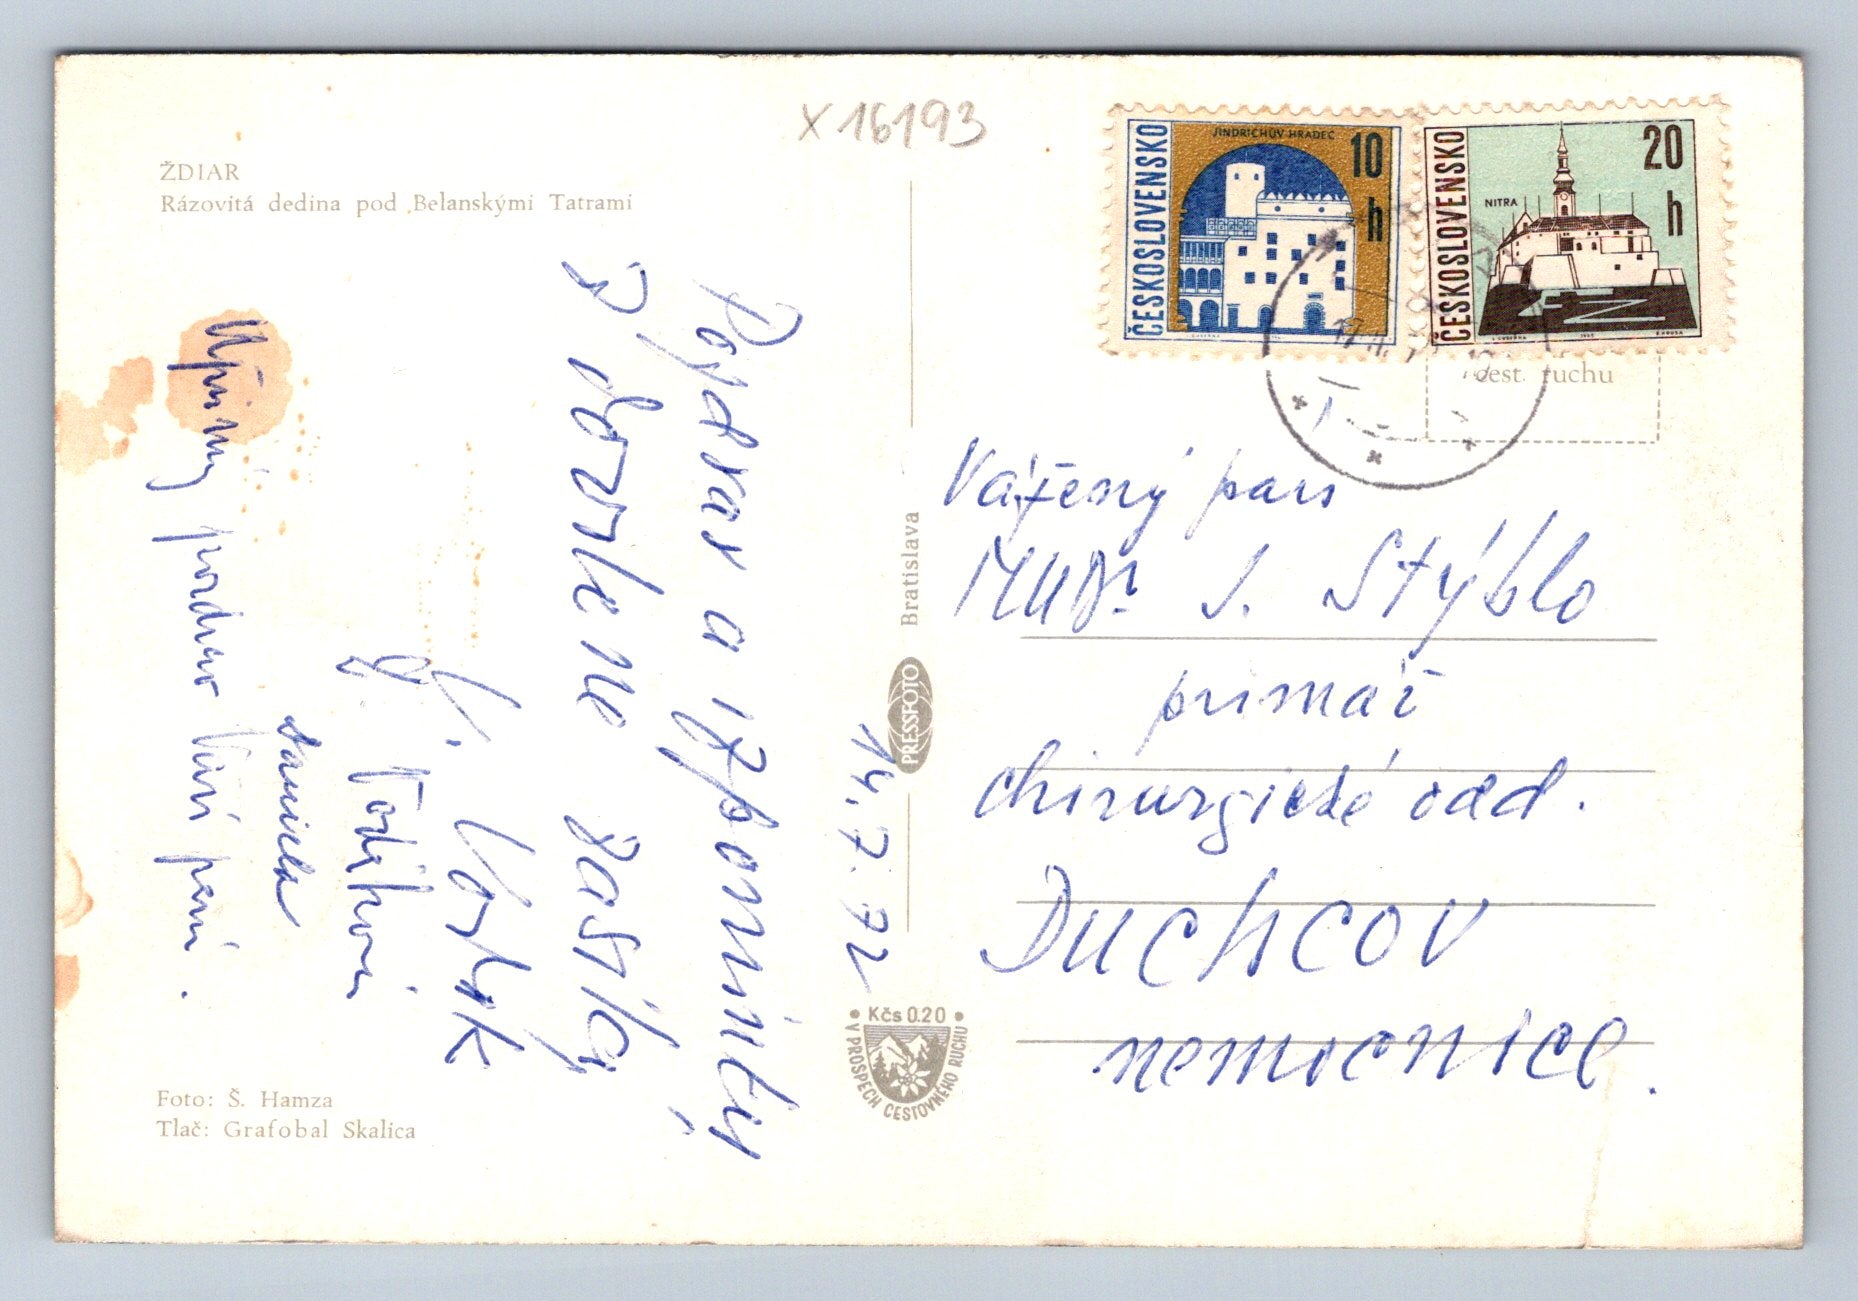 X 16193
ŽDIAR
Rázovitá dedina pod Belanskými Tatrami
ČESKOSLOVENSKO
JINDŘICHŮV HRADEC
10 h
ČESKOSLOVENSKO
NITRA
20 h
cest. ruchu
14. 7. 72
Pozdrav a vzpomínky
z dovolené zasílá
J. Vorlík
Daniela
Upřímný pozdrav Vaší paní.
Bratislava
PRESSFOTO
Kčs 0.20
V PROSPECH CESTOVNÉHO RUCHU
Vážený pan
MUDr. J. Stýblo
primář
chirurgické odd.
Duchcov
nemocnice.
Foto: Š. Hamza
Tlač: Grafobal Skalica